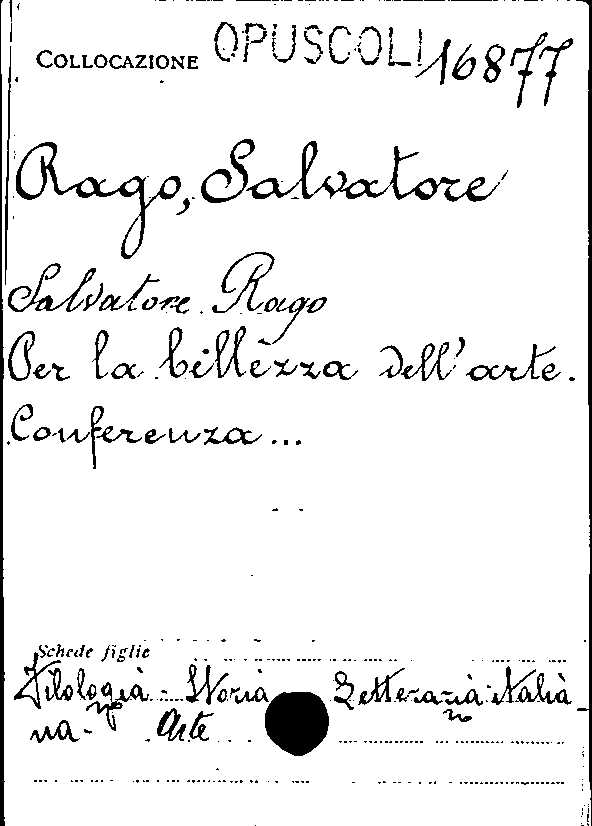 COLLOCAZIONE OPUSCOLI 16877
Rago, Salvatore
Salvatore Rago
Per la billèzza dell'arte.
Conferenza...
Schede figlie
Filologia - Storia Letteraria italia-
na - Arte